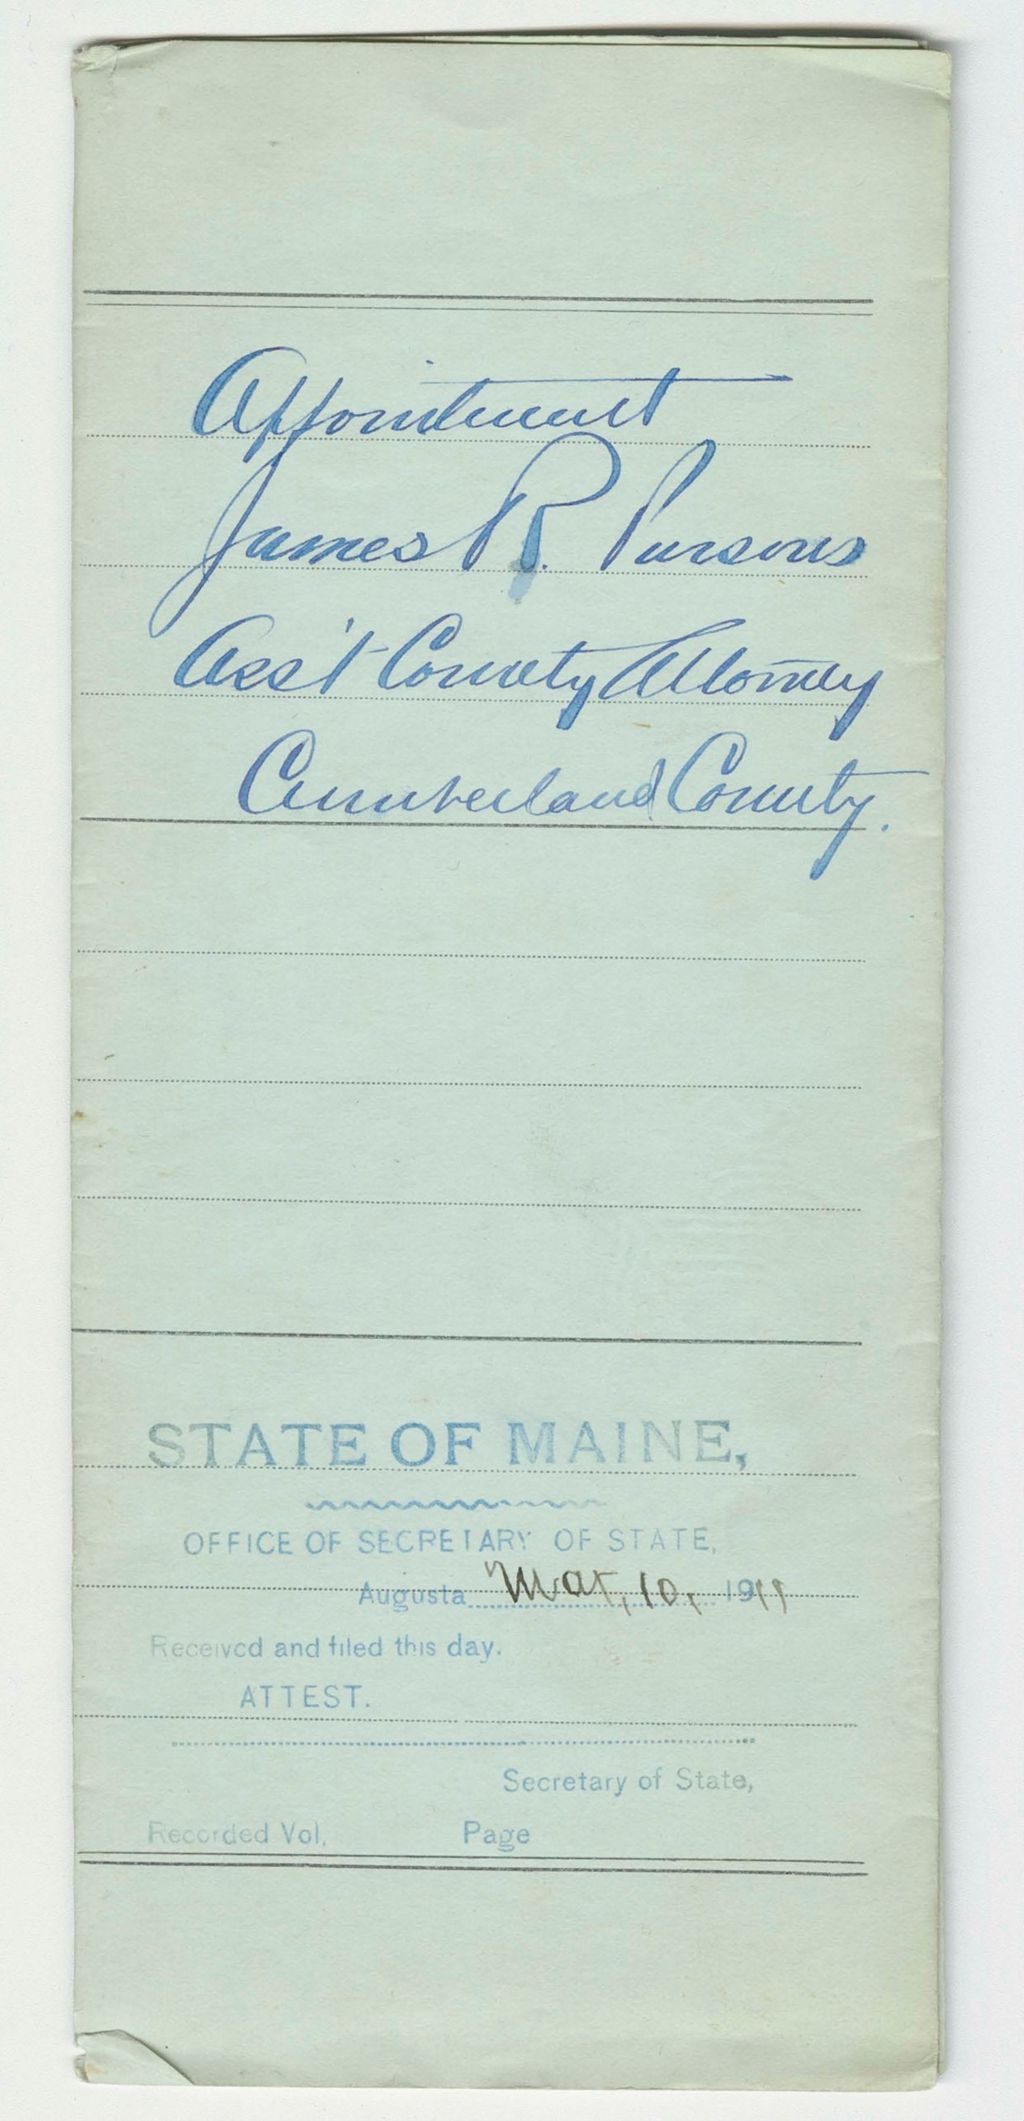 Appointment
James R. Parsons
Ass't County Attorney
Cumberland County.
STATE OF MAINE,
OFFICE OF SECRETARY OF STATE,
Augusta Mar, 10, 1911
Received and filed this day.
ATTEST.
Secretary of State,
Recorded Vol. Page